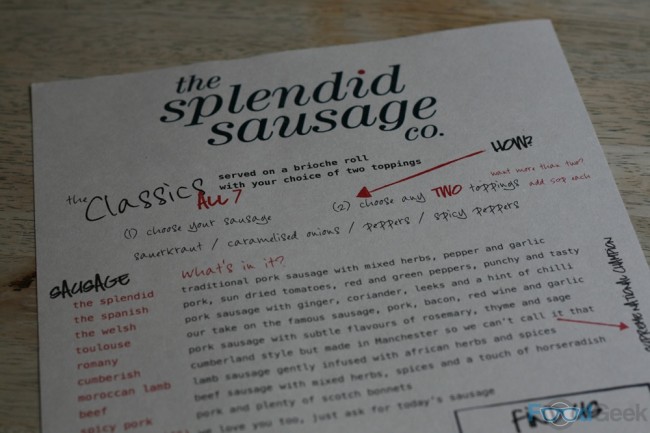 the
splendid
sausage
co.
HOW?
the Classics
served on a brioche roll
with your choice of two toppings
ALL 7
want more than two?
add 50p each
(1) choose your sausage
(2) choose any TWO toppings
sauerkraut / caramelised onions / peppers / spicy peppers
SAUSAGE What's in it?
the splendid traditional pork sausage with mixed herbs, pepper and garlic
the spanish pork, sun dried tomatoes, red and green peppers, punchy and tasty
the welsh pork sausage with ginger, coriander, leeks and a hint of chilli
toulouse our take on the famous sausage, pork, bacon, red wine and garlic
romany pork sausage with subtle flavours of rosemary, thyme and sage
cumberish cumberland style but made in Manchester so we can't call it that
moroccan lamb lamb sausage gently infused with african herbs and spices
beef beef sausage with mixed herbs, spices and a touch of horseradish
spicy pork pork and plenty of scotch bonnets
we love you too, just ask for today's sausage
NATIONAL CHAMPION
FoodGeek